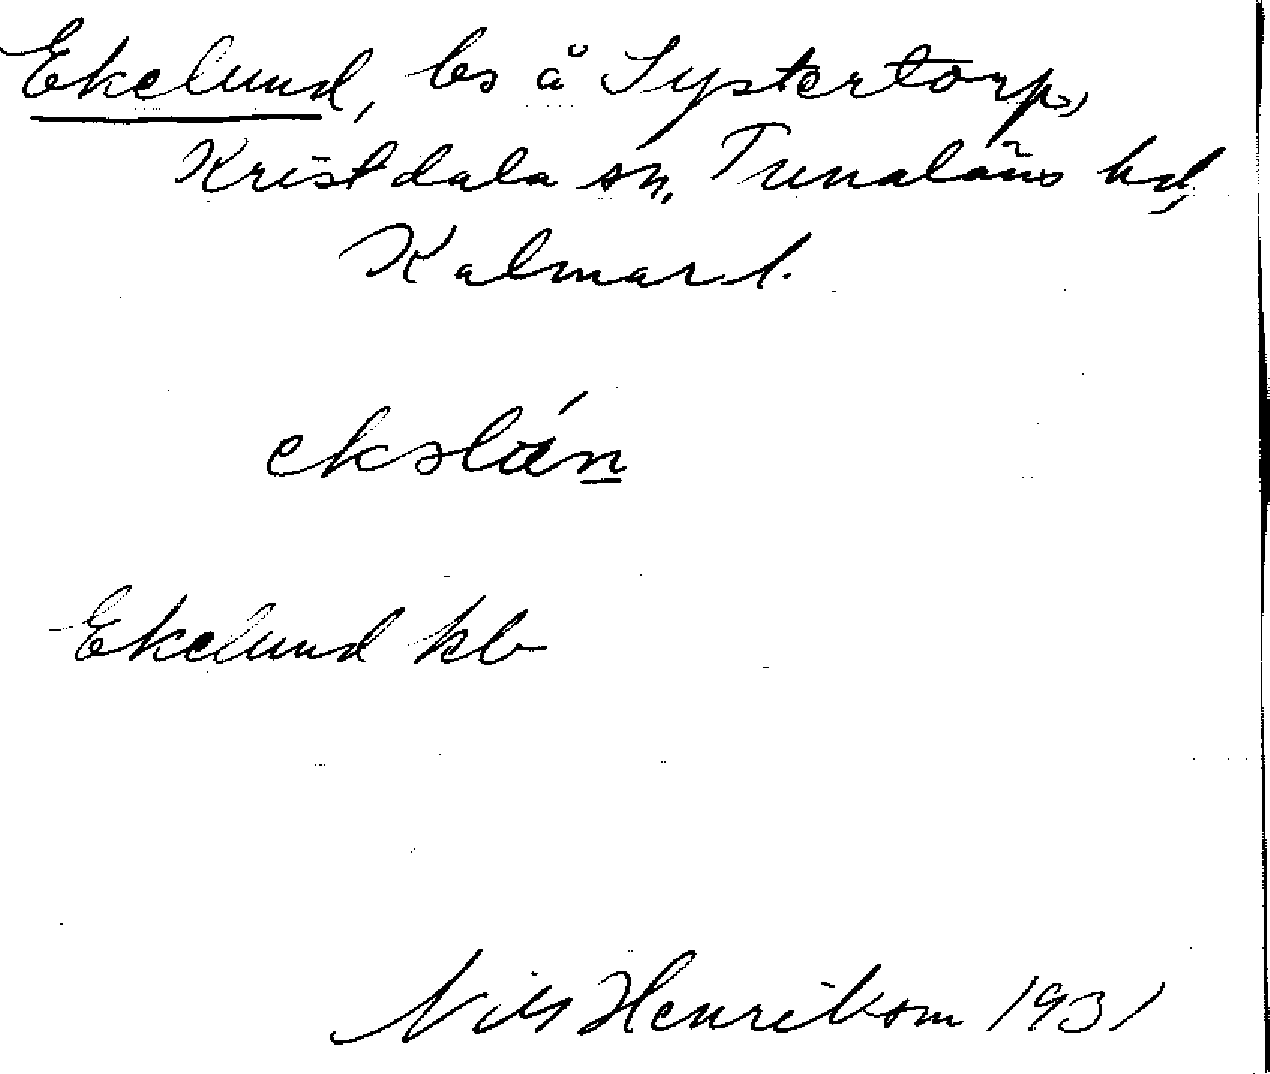 Ekelund, bs å Systertorp,
Kristdala sn, Tunaläns hd,
Kalmar l.
Ekelund kb
Nils Henrikson 1931